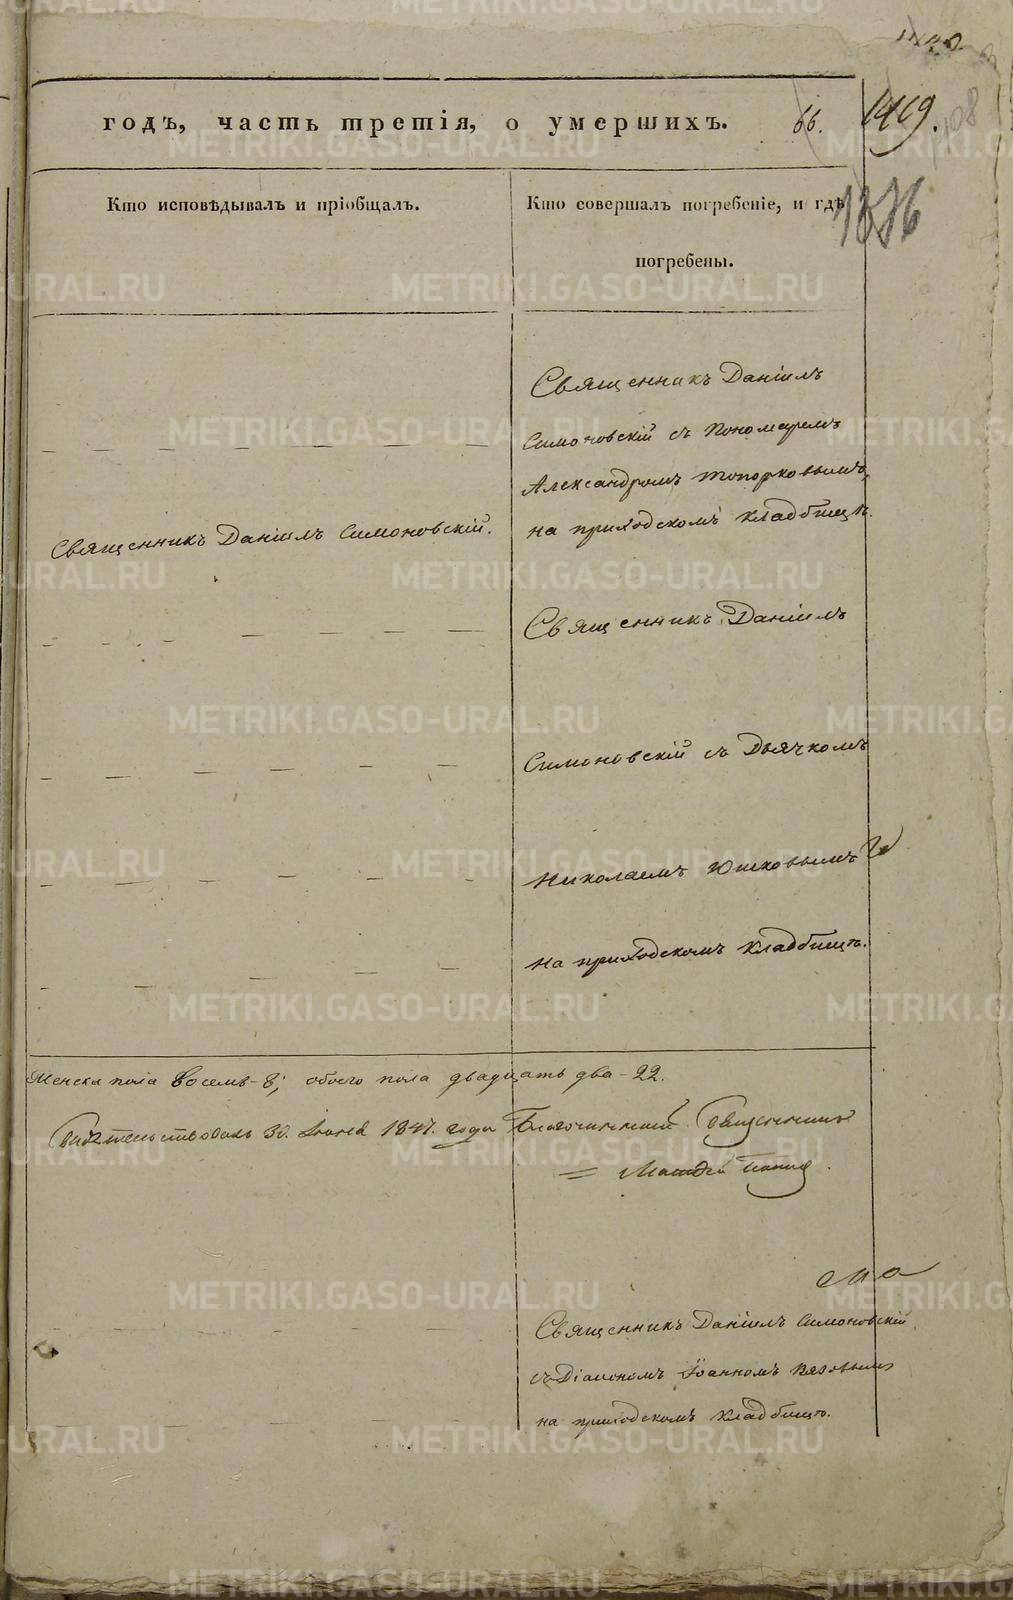 годъ, часть третія, о умершихъ.
66.
1419.
108
1876
Кто исповѣдывалъ и пріобщалъ.
Кто совершалъ погребеніе, и гдѣ
погребены.
Священникъ Даніилъ
Симоновскій съ Пономаремъ
Александромъ Топорковымъ,
на приходскомъ кладбищѣ.
Священникъ Даніилъ Симоновскій.
Священникъ Даніилъ
Симоновскій съ Дьячкомъ
Николаемъ Юшковымъ
на приходскомъ кладбищѣ.
Женска пола восемь - 8; обоего пола двадцать два - 22.
Свидѣтельствовалъ 30. 1847. года Благочинный Священникъ
Священникъ Даніилъ Симоновскій
съ Діакономъ Іоанномъ Вязовымъ
на приходскомъ кладбищѣ.
METRIKI.GASO-URAL.RU